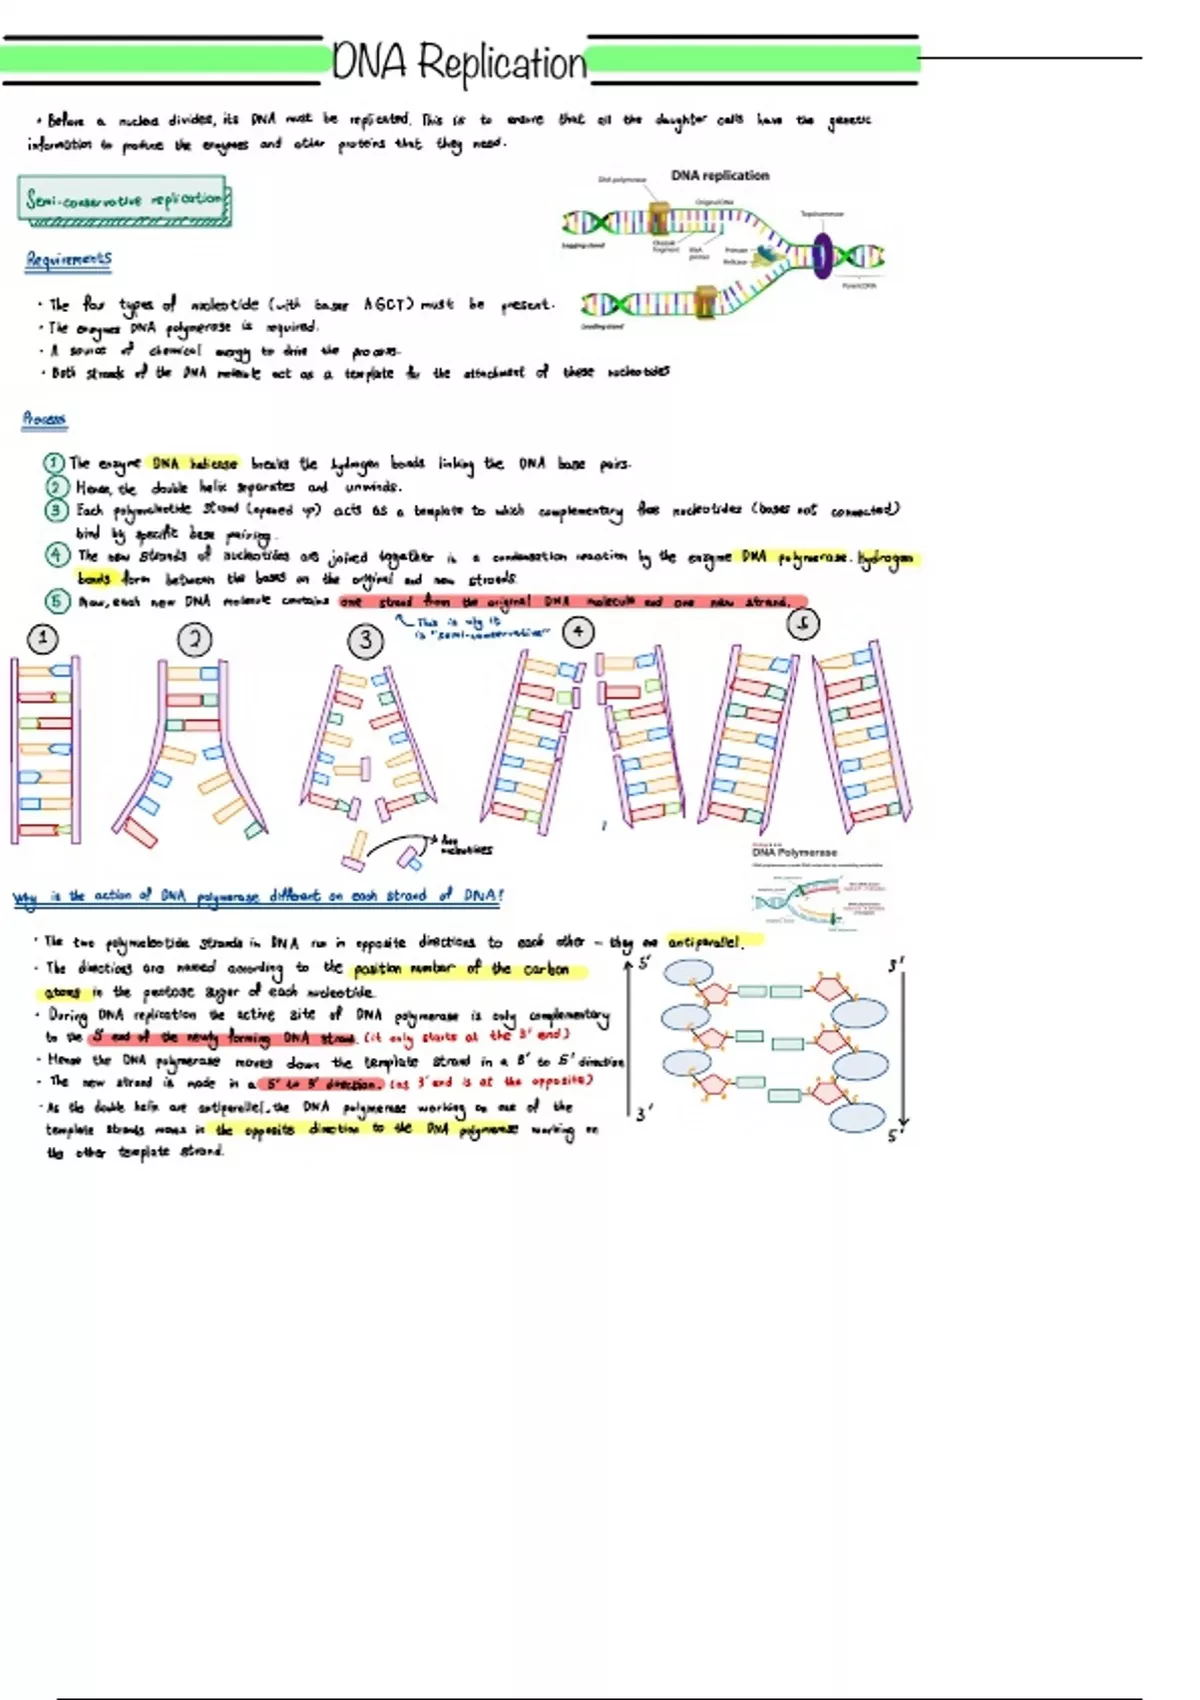 DNA Replication
• Before a nucleus divides, its DNA must be replicated. This is to ensure that all the daughter cells have the genetic
information to produce the enzymes and other proteins that they need.
Semi-conservative replication
DNA replication
DNA polymerase
Original DNA
Topoisomerase
Lagging strand
Okazaki
fragment
RNA
primer
Primase
Helicase
Parent DNA
Leading strand
Requirements
• The four types of nucleotide (with bases AGCT) must be present.
• The enzymes DNA polymerase is required.
• A source of chemical energy to drive the process.
• Both strands of the DNA molecule act as a template for the attachment of these nucleotides
Process
1 The enzyme DNA helicase breaks the hydrogen bonds linking the DNA base pairs.
2 Hence, the double helix separates and unwinds.
3 Each polynucleotide strand (opened up) acts as a template to which complementary free nucleotides (bases not connected)
bind by specific base pairing.
4 The new strands of nucleotides are joined together in a condensation reaction by the enzyme DNA polymerase. Hydrogen
bonds form between the bases on the original and new strands.
5 Now, each new DNA molecule contains one strand from the original DNA molecule and one new strand.
This is why it
is "semi-conservative"
1
2
3
4
5
free
nucleotides
DNA Polymerase
Why is the action of DNA polymerase different on each strand of DNA?
• The two polynucleotide strands in DNA run in opposite directions to each other - they are antiparallel.
• The directions are named according to the position number of the carbon
atoms in the pentose sugar of each nucleotide.
• During DNA replication the active site of DNA polymerase is only complementary
to the 3' end of the newly forming DNA strand. (it only starts at the 3' end)
• Hence the DNA polymerase moves down the template strand in a 3' to 5' direction
• The new strand is made in a 5' to 3' direction. (as 3' end is at the opposite)
• As the double helix are antiparallel, the DNA polymerase working on one of the
template strands moves in the opposite direction to the DNA polymerase working on
the other template strand.
5'
3'
3'
5'